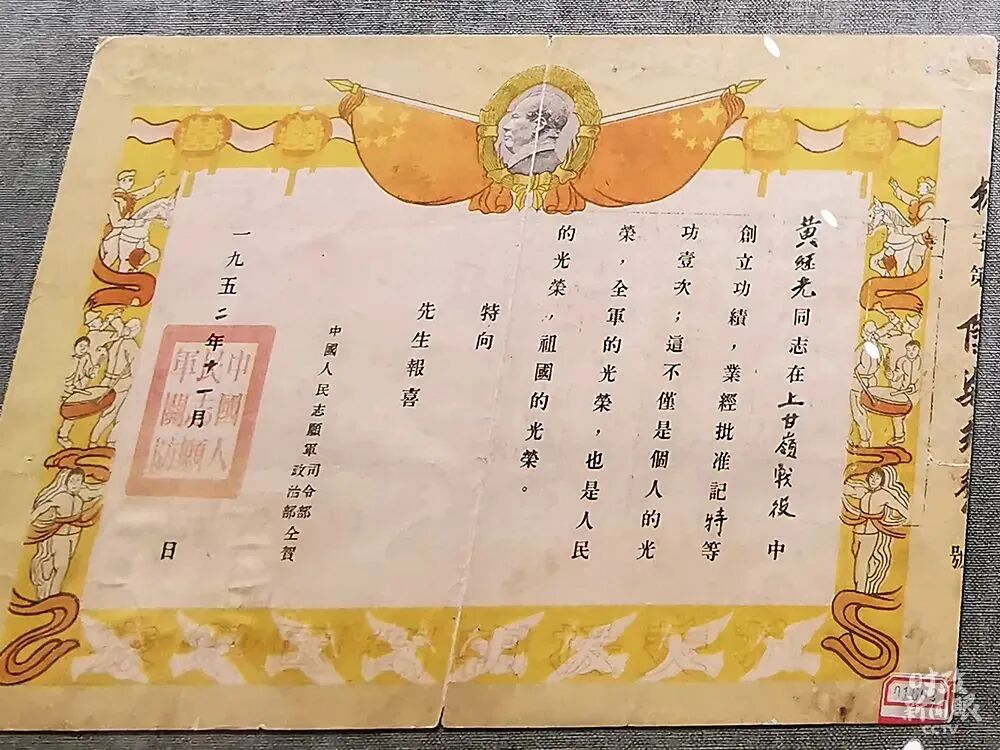 字第
號
黃继光同志在上甘嶺戰役中
創立功績，業經批准記特等
功壹次；這不僅是個人的光
榮，全軍的光榮，也是人民
的光榮，祖國的光榮。
特向
先生報喜
中國人民志願軍司令部
政治部仝賀
一九五二年十一月 日
中國人
民志願
軍關防
时政
新闻眼
CCTV